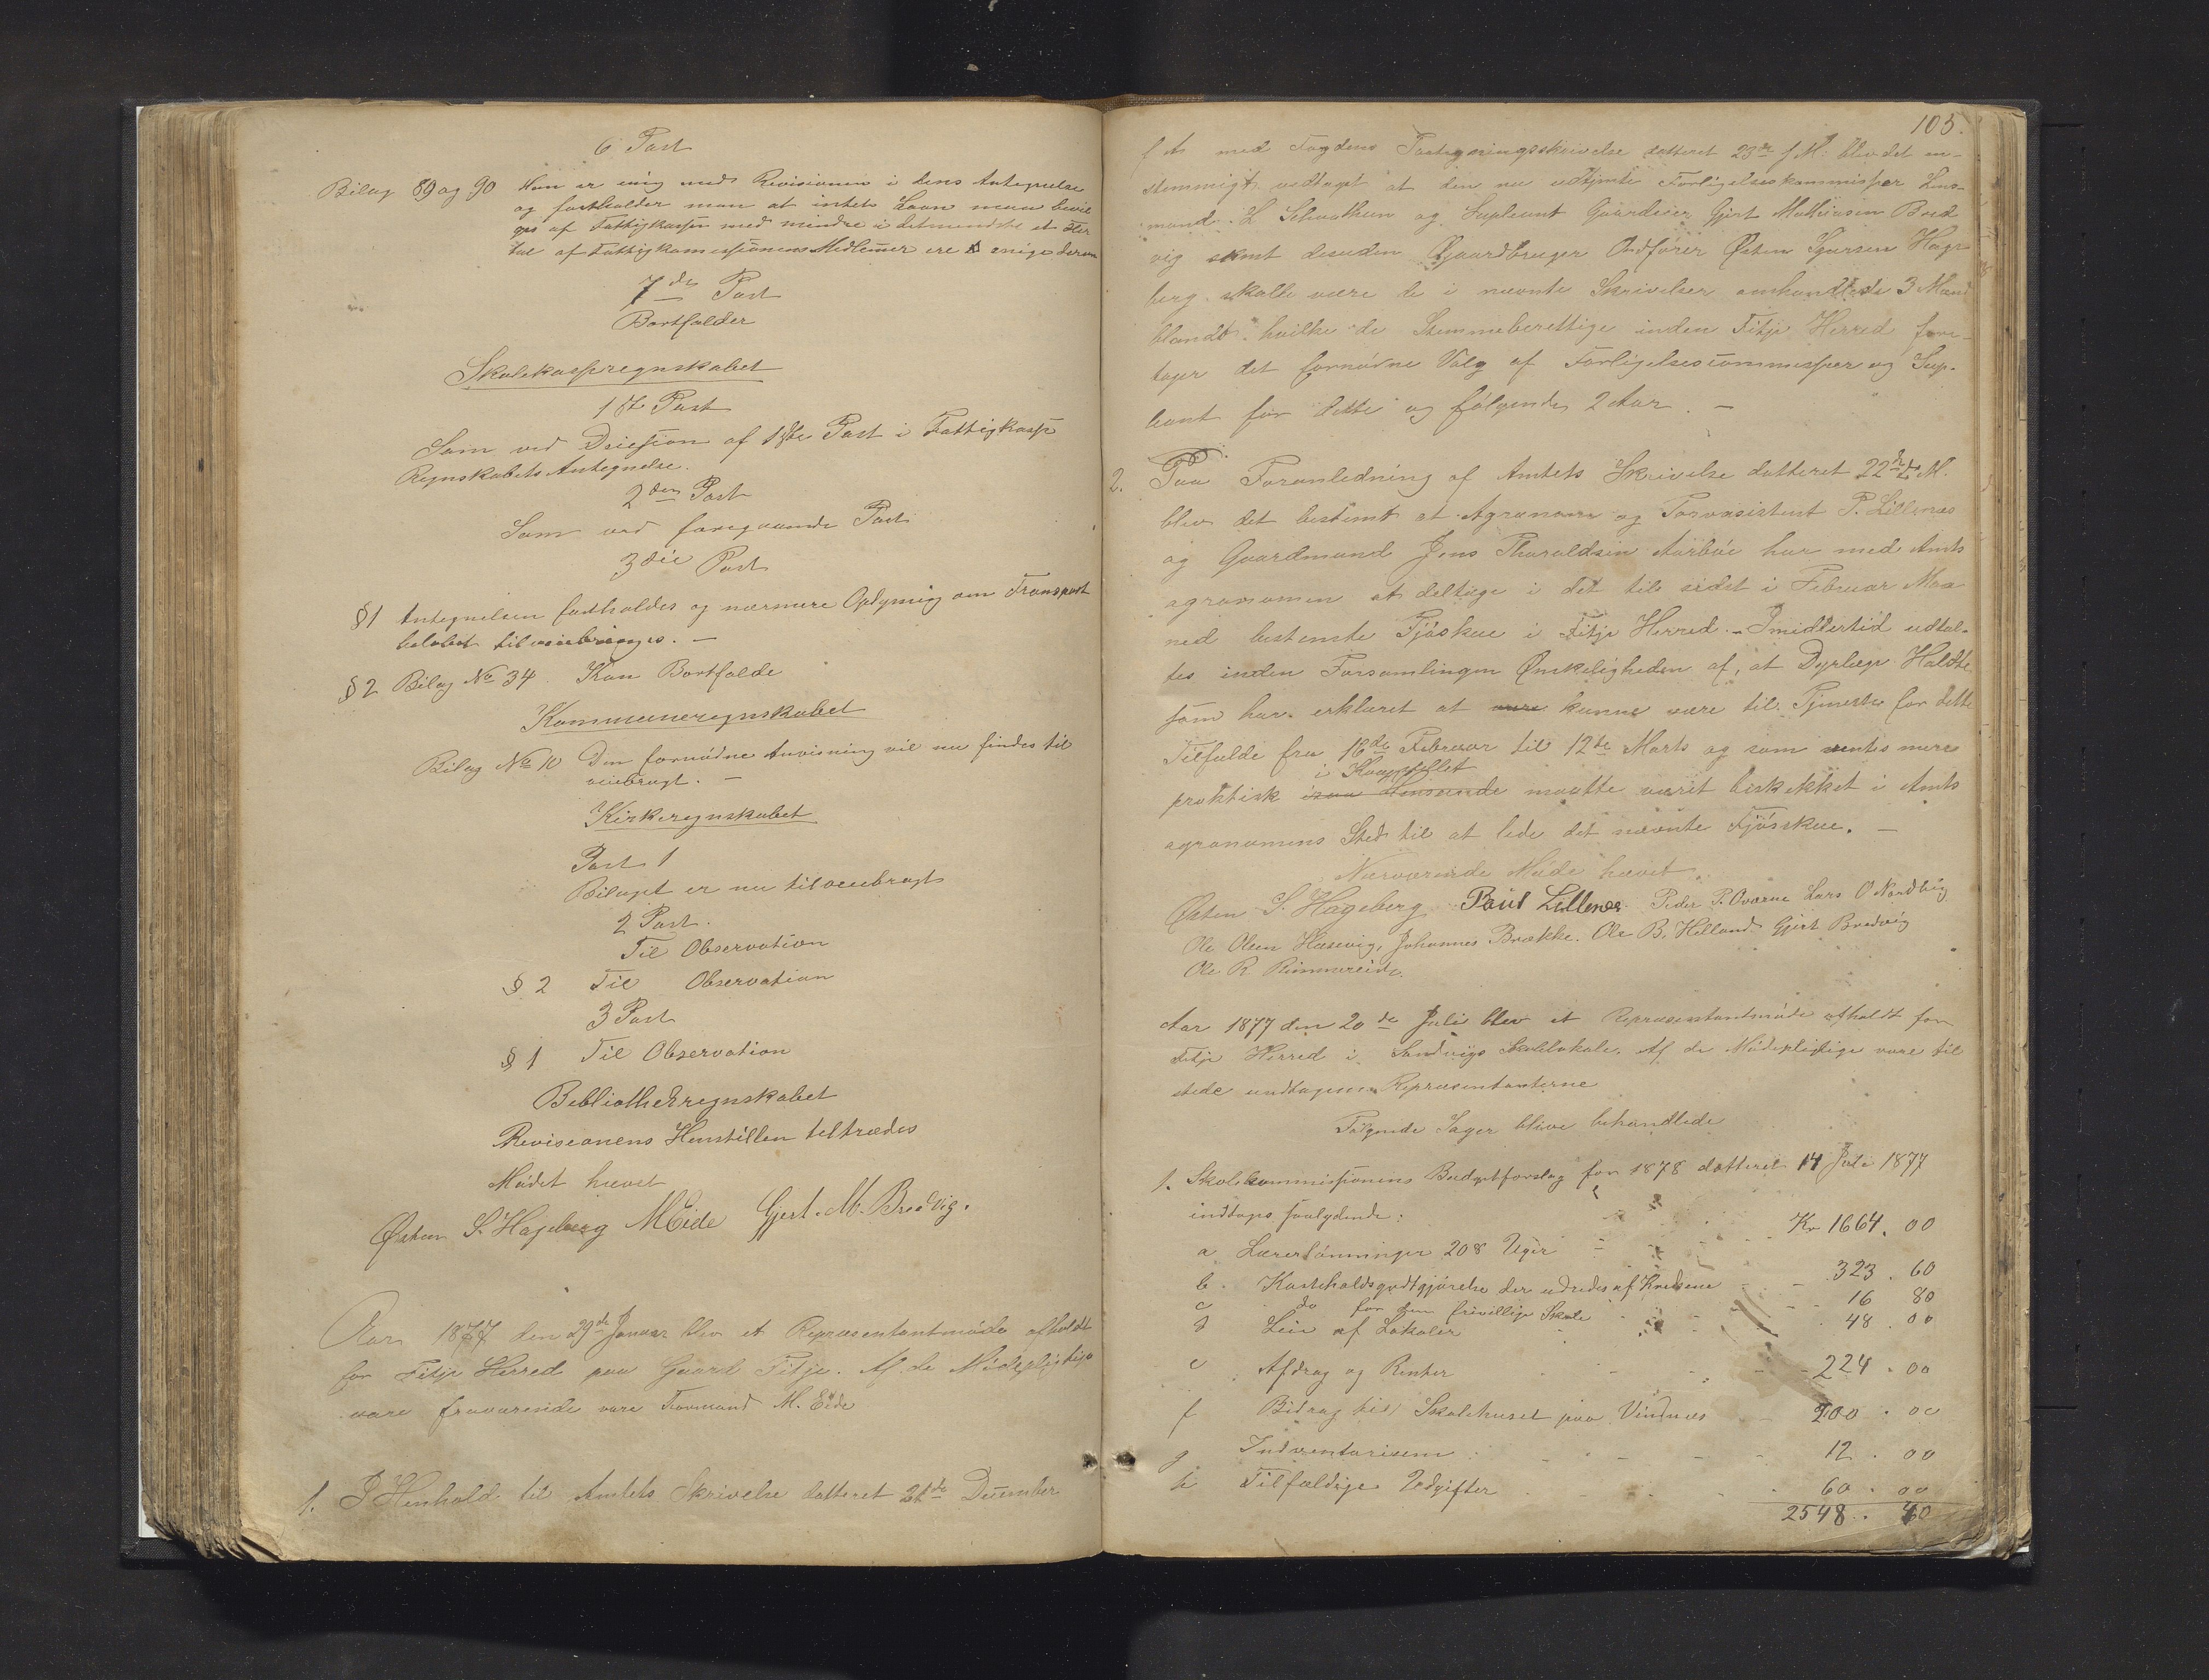 6 Post
Bilag 89 og 90 Man er enig med Revisionen i dens Antegnelse
og fastholder man at intet Laan maa bevil
ges af Fattigkassen med mindre i detmindste et Fler
tal af Fattigkomissionens Medlemer ere enige derom
7de Post
Bortfalder
Skolekasseregnskabet
1ste Post
Som ved Desision af 1ste Post i Fattigkasse
Regnskabets Antegnelse.
2den Post
Som ved foregaaende Post
3die Post
§ 1 Antegnelsen fastholdes og nærmere Oplysning om Transport
beløbet tilveiebringes. —
§ 2 Bilag No 34. Kan Bortfalde
Kommuneregnskabet
Bilag No 10 Den fornødne Anvisning vil nu findes til
veiebragt. —
Kirkeregnskabet
Post 1
Bilaget er nu tilveiebragt
2 Post.
Til Observation
§ 2 Til Observation
3 Post
§ 1 Til Observation
Bibliothekregnskabet
Revisionens Henstillen tiltrædes
Mødet hævet
Østen S. Hageberg M Eide Gjert. M. Bredvig.
Aar 1877 den 29de Januar blev et Repræsentantmøde afholdt
for Fitje Herred paa Gaard Fitje. Af de Mødepligtige
vare fraværende vare Formand M. Eide
1. I Henhold til Amtets Skrivelse datteret 31te December
105.
f A. med Fogdens Paategningsskrivelse datteret 23de f. M. blev det en-
stemmigt vedtaget at den nu udtjente Forligelseskommissær Lens-
mand L Schaathun og Supleant Gaardeier Gjert Mathiasen Bred
vig samt desuden Gaardbruger Ordfører Østen Sjursen Hage
berg skulle være de i nævnte Skrivelser omhandlede 3 Mænd
blandt hvilke de Stemmeberettige inden Fitje Herred fore-
tager det fornødne Valg af Forligelsescommissær og Sup-
leant for dette og følgende 2 Aar. —
2. Paa Foranledning af Amtets Skrivelse datteret 22de M.
blev det bestemt at Agronom og Torvasistent P. Lillenes
og Gaardmand Jens Tharaldsen Aarbøe har med Amts
agronomen at deltage i det til sidst i Februar Maa
ned bestemte Fjøskue i Fitje Herred. — Imidlertid udtal-
tes inden Forsamlingen Ønskeligheden af, at Dyrlæge Holdte
som har erklæret at kunne være til Tjeneste for dette
Tilfælde fra 16de Februar til 12te Marts og som ventes mere
i Kvægstellet
praktisk maatte været beskikket i Amts
agronomens Sted til at lede det nævnte Fjøsskue. —
Nærværende Møde hævet.
Østen S. Hageberg Paul Lillenes. Peder P. Oværne Lars O Nordbig
Ole Olsen Huсevig, Johannes Brække. Ole B. Helland. Gjert Bredvig
Ole R Rimmereide.
Aar 1877 den 20de Juli blev et Repræsentantmøde afholdt for
Fitje Herred i Sandvigs Skolelokale. Af de Mødepligtige vare til
stede undtagen Repræsentanterne
Følgende Sager blive behandlede
1. Skolekommissionens Budgetforslag for 1878 datteret 14 Juli 1877
indtages saalydende:
a Lærerlønninger 208 Uger Kr 1664. 00
b. Kostholdsgodtgjørelse der udredes af Kredsene 323. 60
c do for den frivillige Skole 16 80
d Leie af Lokaler 48. 00
e Afdrag og Renter 224. 00
f Bidrag til Skolehuset paa Vindnæs 200. 00
g Indventarisem 12. 00
h Tilfældige Udgifter 60. 00
2548. 40